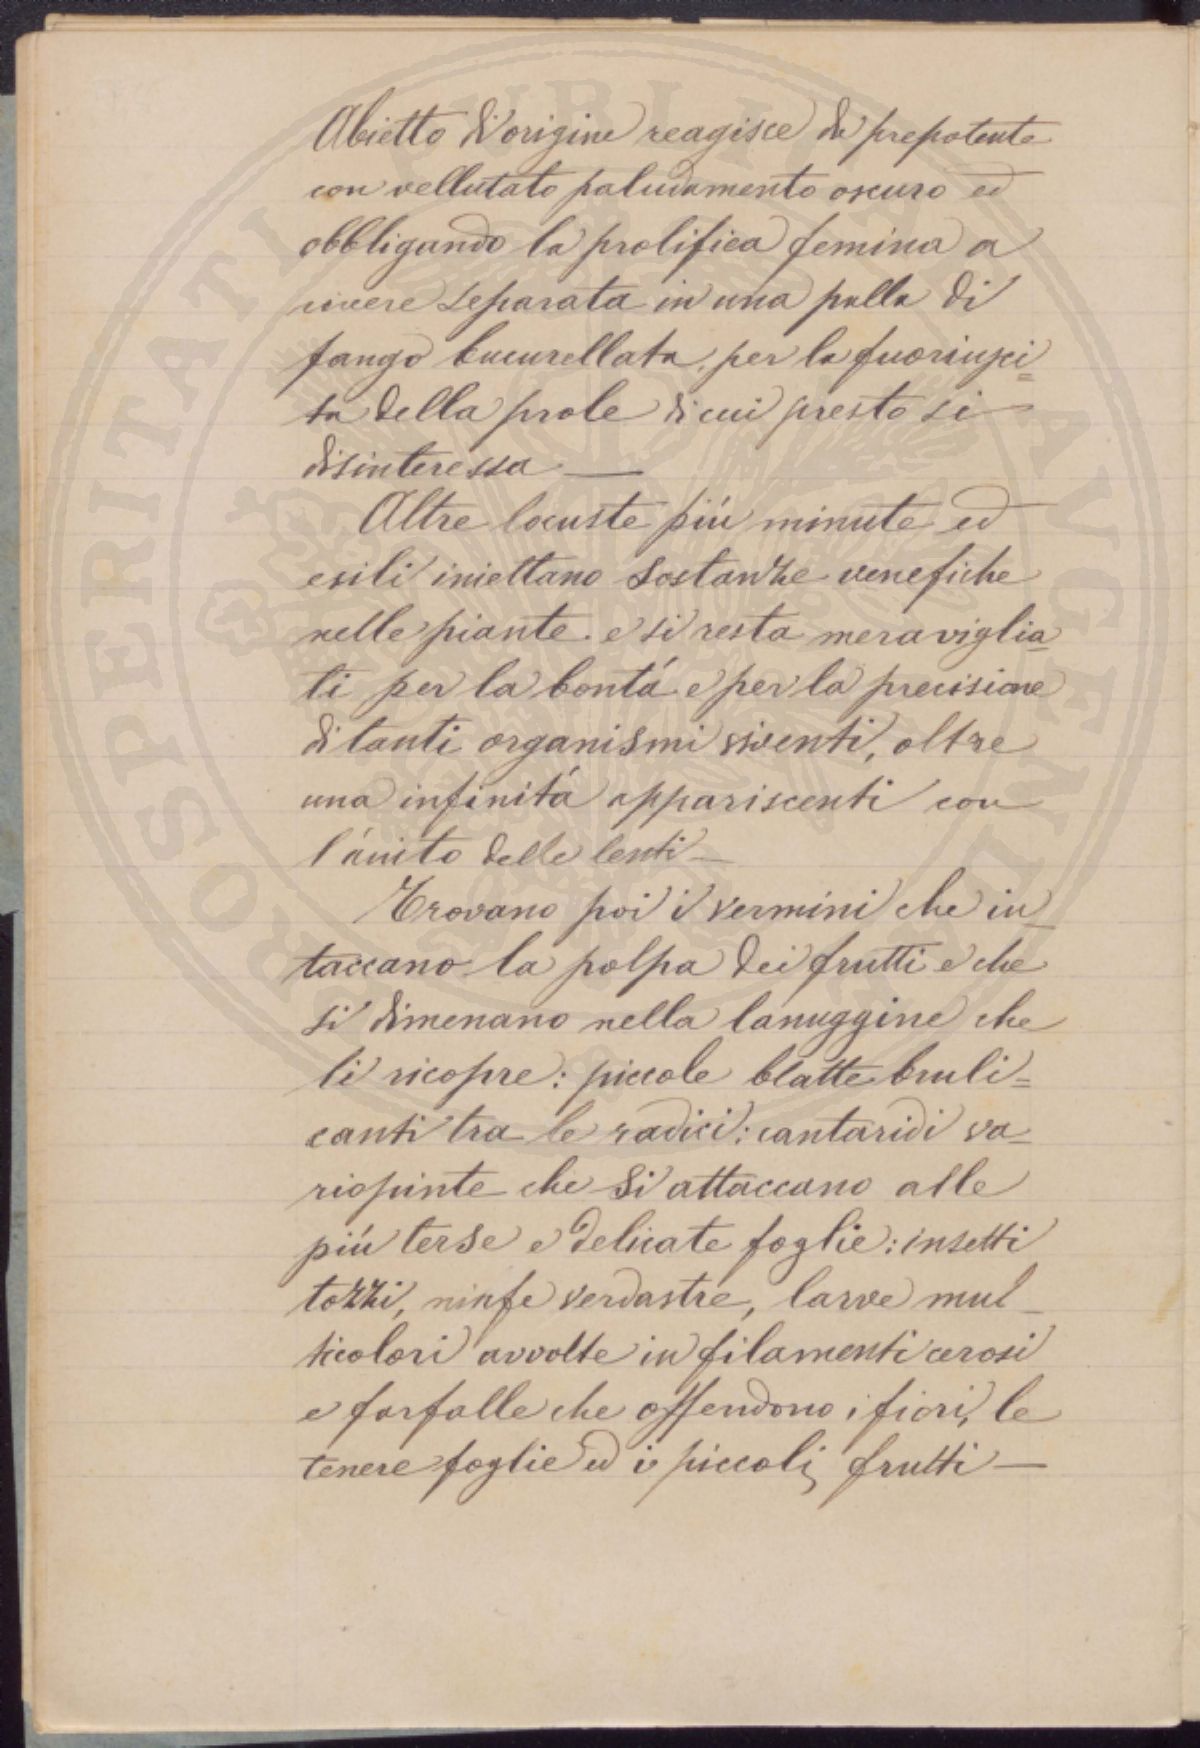 Abietto d'origine reagisce da prepotente
con vellutato paludamento oscuro ed
obbligando la prolifica femina a
vivere separata in una palla di
fango bucurellata, per la fuoriusci=
ta della prole di cui presto si
disinteressa —
Altre locuste piú minute ed
esili iniettano sostanze venefiche
nelle piante e si resta meraviglia_
ti per la bontá e per la precisione
di tanti organismi viventi, oltre
una infinitá appariscenti con
l'áuito delle lenti —
Trovano poi i vermini che in_
taccano la polpa dei frutti e che
si dimenano nella lanuggine che
li ricopre: piccole blatte bruli=
canti tra le radici: cantaridi va_
riopinte che si attaccano alle
piú terse e delicate foglie: insetti
tozzi, ninfe verdastre, larve mul_
ticolori avvolte in filamenti cerosi
e farfalle che offendono i fiori, le
tenere foglie ed i piccoli frutti —
PROSPERITATI PUBLICAE AUGENDAE